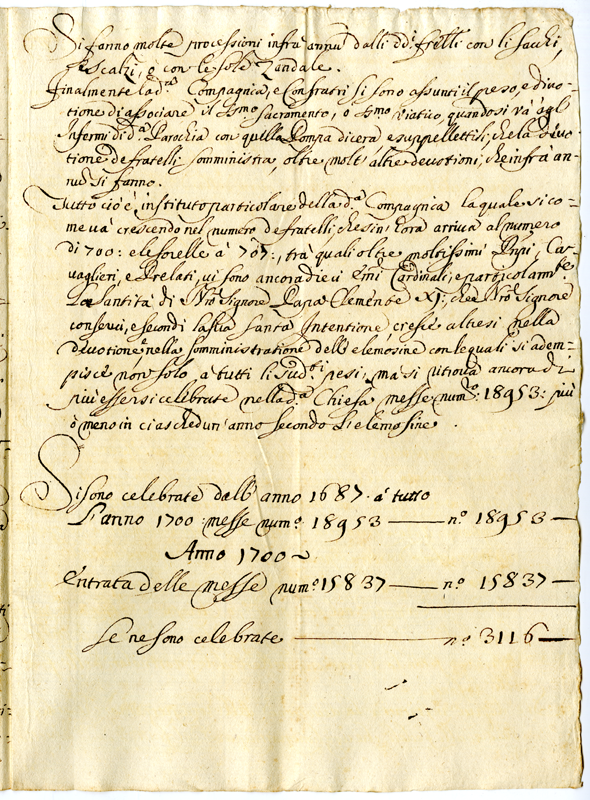 Si fanno molte processioni infra annu dalli dd.i frélli con li sacchi,
e scalzi, ò con le sole zandale.
Finalmente la d.a Compagnia, e Confratri si sono assunti il peso, e divo-
tione di associare il SS.mo Sacramento, o SS.mo Viatico, quando si và agl'
Infermi di d.a Parochia con quella Pompa di cera, e suppellettili, che la devo-
tione de fratelli somministra, oltre molt'altre devotioni, che infrà an-
nù si fanno.
Tutto ciò è instituto particolare della d.a Compagnia la quale si co-
me và crescendo nel numero de fratelli, che sin'hora arriva al numero
di 700: e le sorelle à 707:, trà quali oltre moltissimi Pnpi, Ca-
vaglieri, e Prelati, vi sono ancora dieci Emi Cardinali, e particolarm.te
La Santità di Nro Signore Papa Clemente XI; che Nro Signore
conservi, e secondi la sua Santa Intentione, cresce altresi nella
devotione, e nella somministratione dell'elemosine con le quali si adem-
pisce non solo à tutti li sud.ti pesi, ma si ritrova ancora di
più essersi celebrate nella d.a Chiesa messe num.o 18953: più
ò meno in ciaschedun'anno secondo l'elemosine.
Si sono celebrate dall'anno 1687. à tutto
l'anno 1700 messe num.o 18953 — n.o 18953 —
Anno 1700
Entrata delle messe num.o 15837 — n.o 15837 —
Se ne sono celebrate — n.o 3116 —